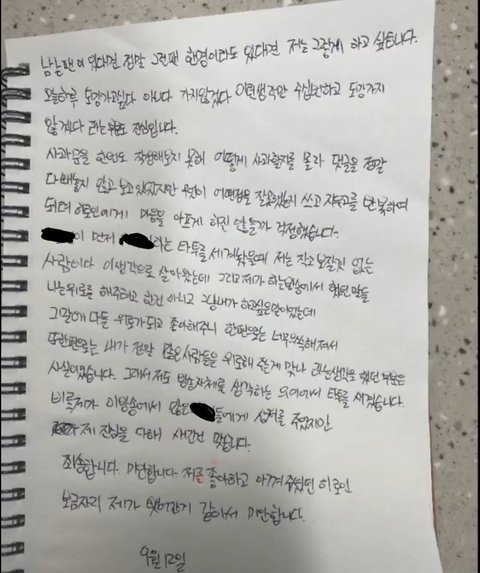 남는팬이 있다면 정말 그런팬 한명이라도 있다면 저는 그렇게 하고 싶습니다.
오늘하루 도망가고싶다 아니다 가지않겠다 이런생각만 수십번하고 도망가지
않겠다 라는 진심입니다.
사과문을 한번도 작성해보지 못해 어떻게 사과할지를 몰라 댓글을 정말
다 빼놓지 않고 보고있었지만 무엇이 어떤점을 잘못했는지 쓰고 지우고를 반복하여
되려 여러분에게 마음을 아프게 하진 않을까 걱정했습니다.
이 먼저 하는 타투를 새겨놨을때 저는 작고 보잘것 없는
사람이다 이생각으로 살아왔는데 그리고 제가 하는방송에서 했던 말들
나는 위로를 해주려고 한건 아니고 그냥 내가 하고싶은말이었는데
그말에 다들 위로가되고 좋아해주니 한편으로는 너무 머쓱해져서
또한편으로는 내가 정말 많은사람들을 위로해 준게 맞나 하는생각을 했던 부분은
사실이었습니다. 그래서 저도 별자체로 생각하는 의미에서 타투를 새겼습니다.
비록 제가 이방송에서 많은 들에게 상처를 주었지만
제 진심을 다해 새긴건 맞습니다.
죄송합니다. 미안합니다. 저를 좋아하고 아껴주셨던
보금자리 제가 뺏어간거 같아서 미안합니다.
9월 12일